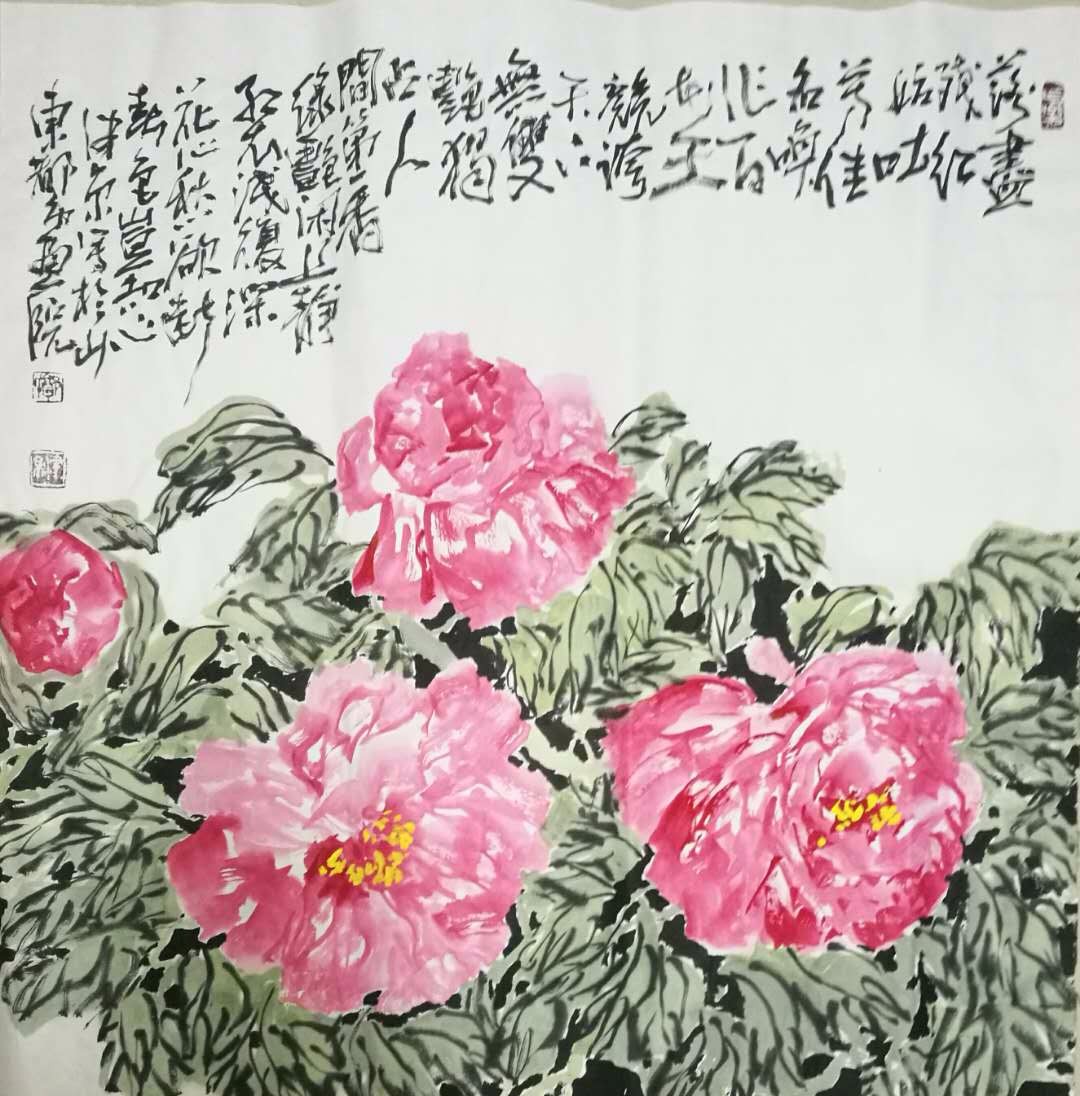 落盡
殘紅
始吐
芳佳
名喚
作百
花王
競誇
天下
無雙
艷獨
占人
間第一香
綠艷閑且靜
紅衣淺復深
花心愁欲斷
春色豈知心
寫於山
東都市畫院